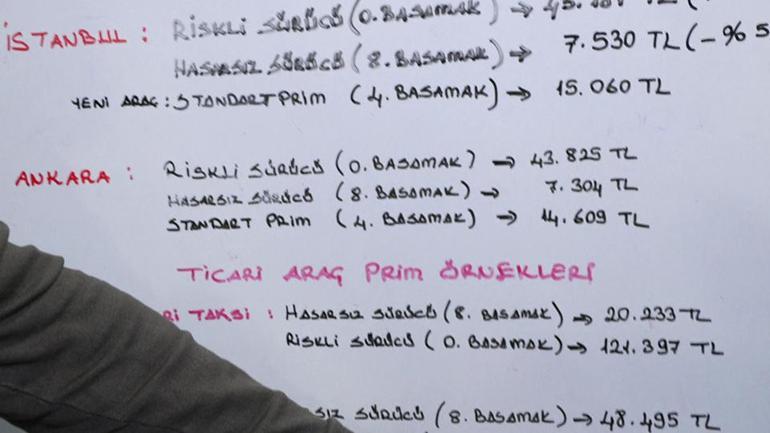 İSTANBUL : RİSKLİ SÜRÜCÜ (0. BASAMAK) →
HASARSIZ SÜRÜCÜ (8. BASAMAK) → 7.530 TL (-% 5
YENİ ARAÇ : STANDART PRİM (4. BASAMAK) → 15.060 TL
ANKARA : RİSKLİ SÜRÜCÜ (0. BASAMAK) → 43.825 TL
HASARSIZ SÜRÜCÜ (8. BASAMAK) → 7.304 TL
STANDART PRİM (4. BASAMAK) → 14.609 TL
TİCARİ ARAÇ PRİM ÖRNEKLERİ
Rİ TAKSİ : HASARSIZ SÜRÜCÜ (8. BASAMAK) → 20.233 TL
RİSKLİ SÜRÜCÜ (0. BASAMAK) → 121.397 TL
SIZ SÜRÜCÜ (8. BASAMAK) → 48.495 TL